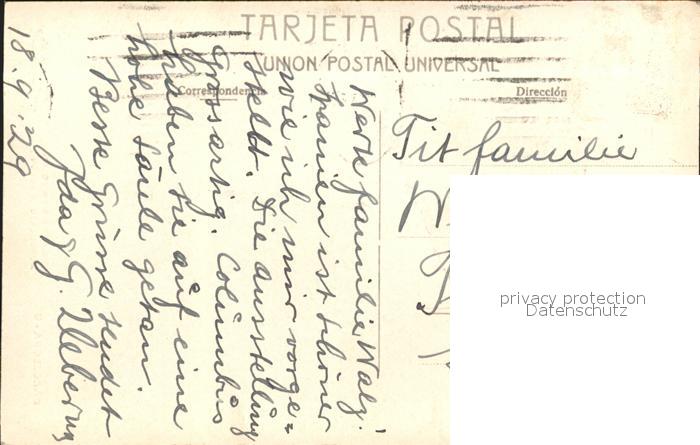 TARJETA POSTAL
UNION POSTAL UNIVERSAL
Correspondencia
Dirección
18.9.29
Werte Familie Walz!
Spanien ist schöner
wie ich mir vorge=
stellt. Die Ausstellung
grossartig. Columbus
haben sie auf eine
hohe Säule getan.
Beste Grüsse sendet
Ida & G.
Tit familie
privacy protection
Datenschutz